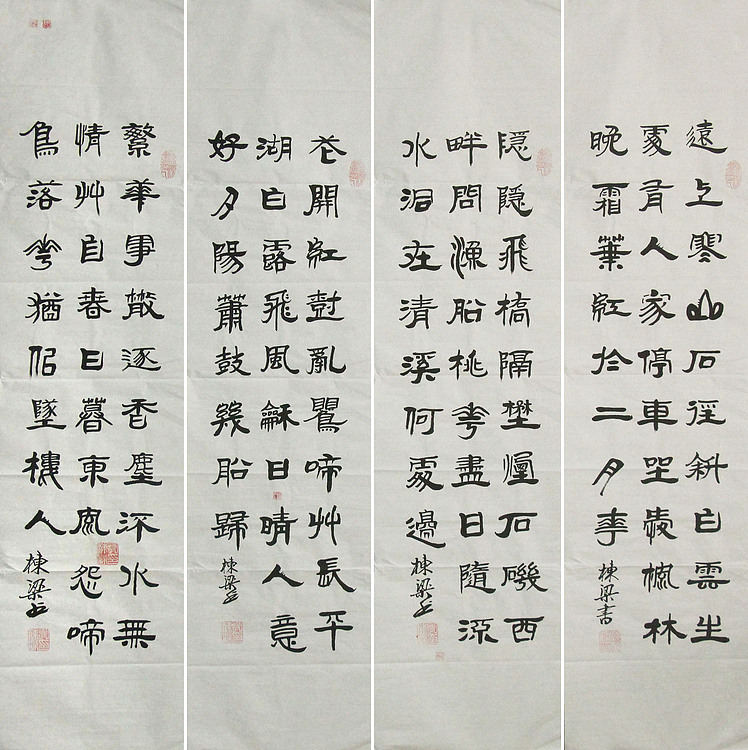 遠上寒山石徑斜白雲生
處有人家停車坐愛楓林
晚霜葉紅於二月華
棟梁書
隱隱飛橋隔壄煙石磯西
畔問漁船桃花盡日隨流
水洞在清溪何處邊
棟梁書
花開紅樹亂鶯啼艸長平
湖白露飛風龢日晴人意
好夕陽簫鼓幾船歸
棟梁書
繁華事散逐香塵流水無
情艸自春日暮東風怨啼
鳥落花猶似墜樓人
棟梁書